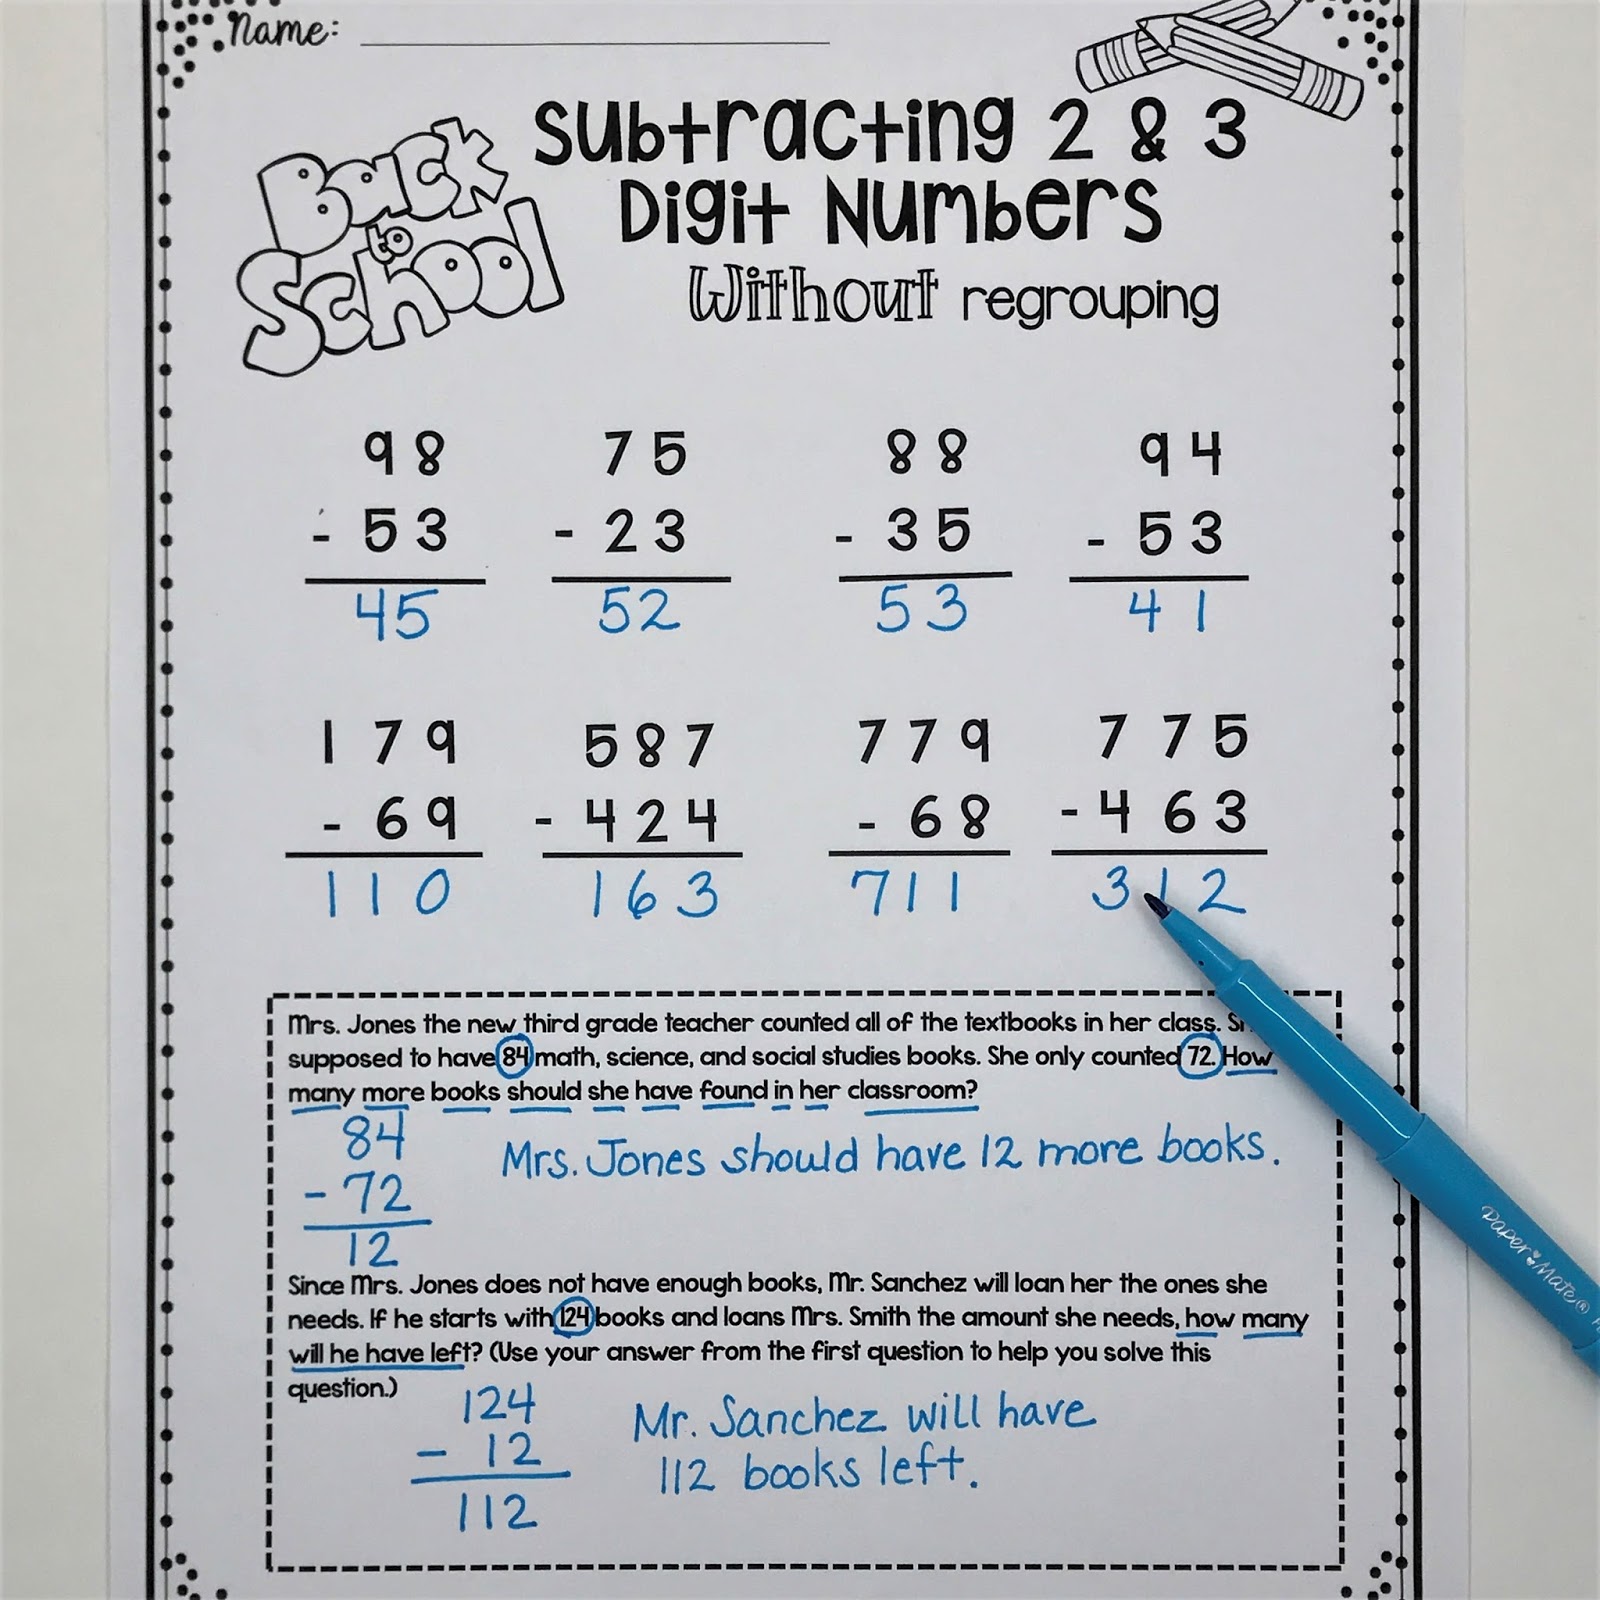 Name:
Back
to
School
Subtracting 2 & 3
Digit Numbers
Without regrouping
98 75 88 94
- 53 - 23 - 35 - 53
45 52 53 41
179 587 779 775
- 69 - 424 - 68 - 463
110 163 711 312
Mrs. Jones the new third grade teacher counted all of the textbooks in her class.
supposed to have 84 math, science, and social studies books. She only counted 72. How
many more books should she have found in her classroom?
84
- 72
12
Mrs. Jones should have 12 more books.
Since Mrs. Jones does not have enough books, Mr. Sanchez will loan her the ones she
needs. If he starts with 124 books and loans Mrs. Smith the amount she needs, how many
will he have left? (Use your answer from the first question to help you solve this
question.)
124
- 12
112
Mr. Sanchez will have
112 books left.
Paper Mate®